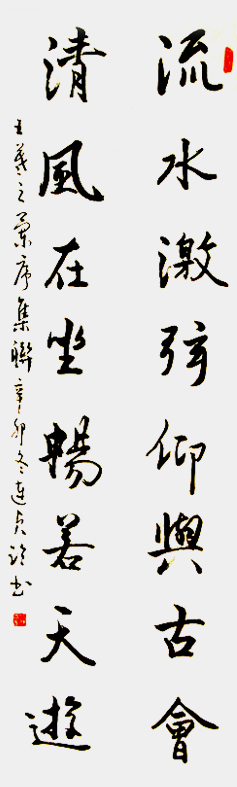 流水激弦仰與古會
清風在坐暢若天遊
王羲之蘭序集聯辛卯冬連貞玲書